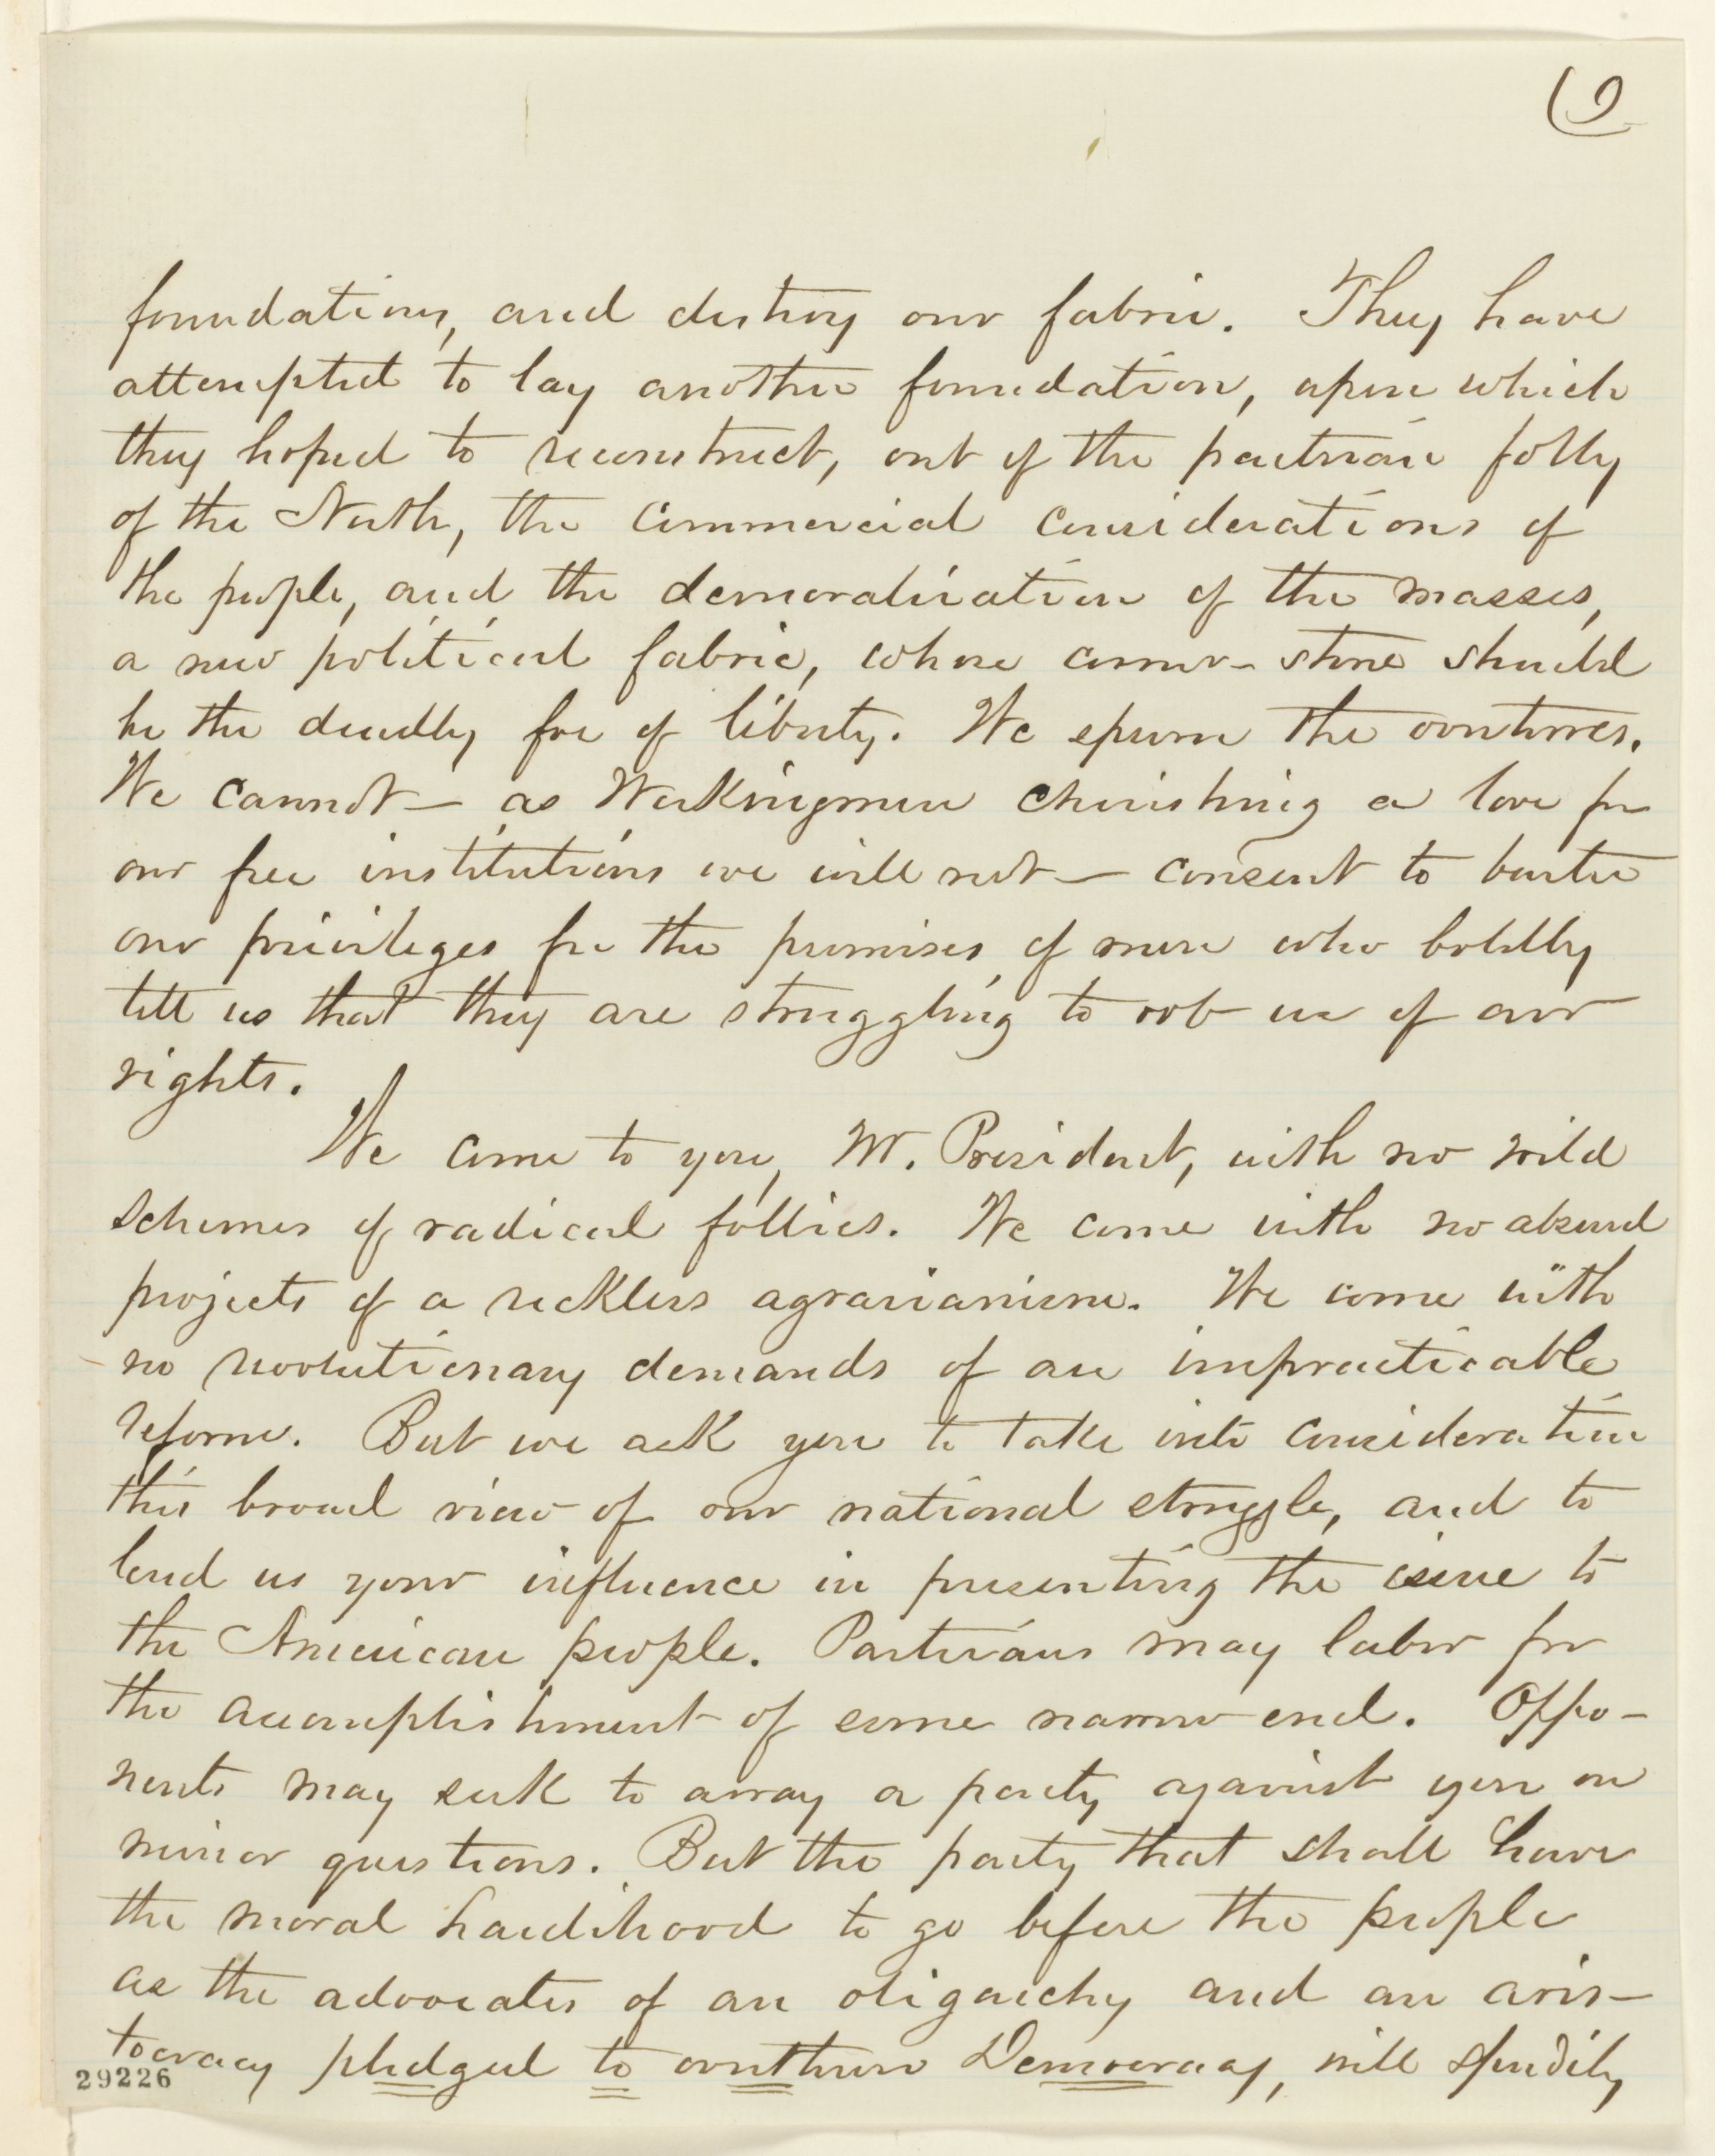 9
foundations, and destroy our fabric. They have
attempted to lay another foundation, upon which
they hoped to reconstruct, out of the partisan folly
of the North, the commercial considerations of
the people, and the demoralization of the masses,
a new political fabric, whose corner-stone should
be the deadly foe of liberty. We spurn the overtures.
We cannot – as Workingmen cherishing a love for
our free institutions we will not – consent to barter
our privileges for the promises of men who boldly
tell us that they are struggling to rob us of our
rights.
We come to you, Mr. President, with no wild
schemes of radical follies. We come with no absurd
projects of a reckless agrarianism. We come with
no revolutionary demands of an impracticable
reform. But we ask you to take into consideration
this broad view of our national struggle, and to
lend us your influence in presenting the issue to
the American people. Partisans may labor for
the accomplishment of some narrow end. Oppo-
nents may seek to array a party against you on
minor questions. But the party that shall have
the moral hardihood to go before the people
as the advocates of an oligarchy and an aris-
tocracy pledged to overthrow Democracy, will speedily
29226